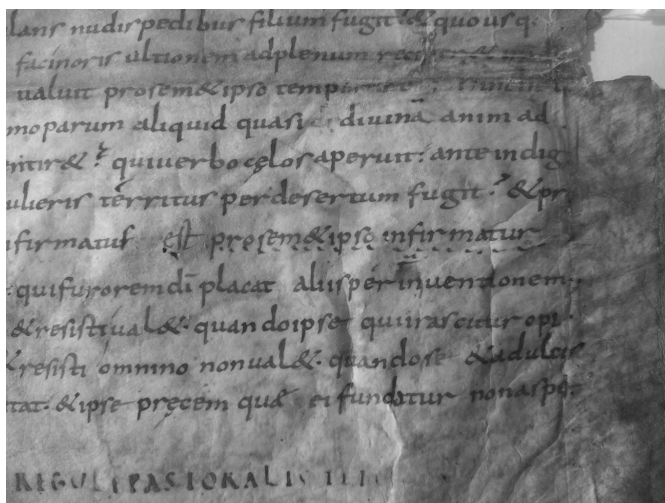 lans nudis pedibus filium fugit & quo usq.
facinoris ultionem adplenum
ualuit prosem&ipso temper
mo parum aliquid quasi divinā anim ad
& qui uerbo cęlos aperuit: ante indig
ulieris territus per desertum fugit & pr
firmatus est prosem&ipso infirmatur
qui furorem dī placat aliis per inuentionem
&resisti ual&. quando ipse qui irascitur opi
resisti omnino non ual&. quando se &adulcis
tat. &ipse pręcem quæ ei funditur non asp
REGULĘ PASTORALIS IIII